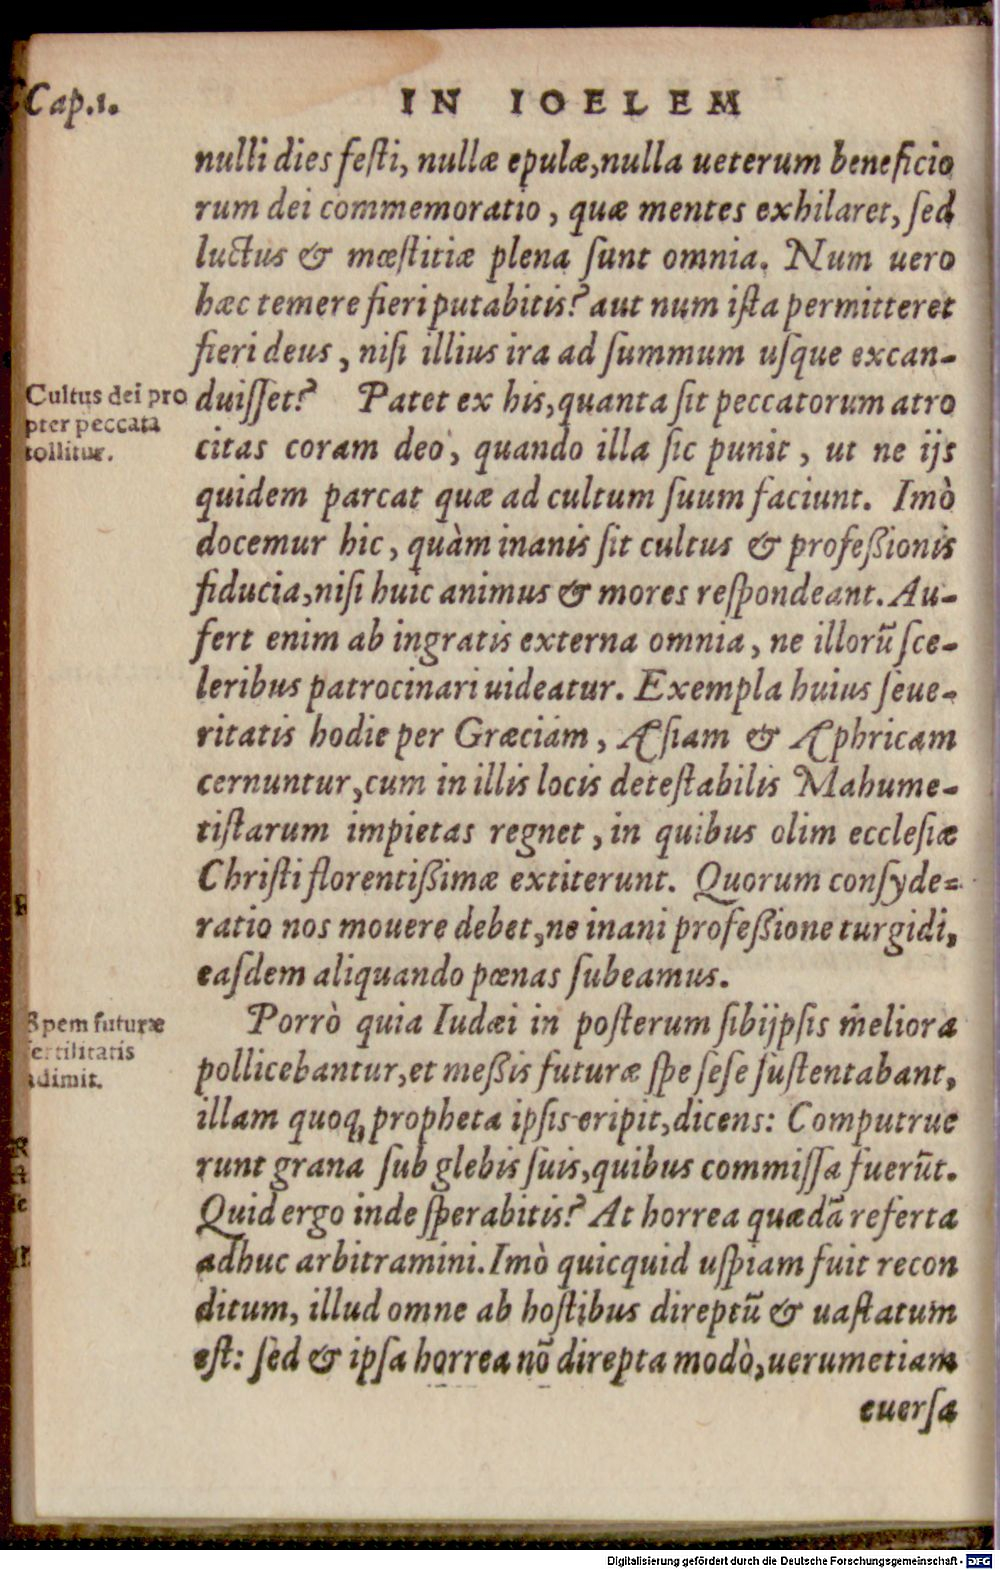 Cap.1.
IN IOELEM
nulli dies feſti, nullæ epulæ, nulla ueterum beneficio
rum dei commemoratio, quæ mentes exhilaret, ſed
luctus & mœſtitiæ plena ſunt omnia. Num uero
hæc temere fieri putabitis? aut num iſta permitteret
fieri deus, niſi illius ira ad ſummum uſque excan-
Cultus dei pro
pter peccata
tollitur.
duiſſet? Patet ex his, quanta ſit peccatorum atro
citas coram deo, quando illa ſic punit, ut ne ijs
quidem parcat quæ ad cultum ſuum faciunt. Imò
docemur hic, quàm inanis ſit cultus & profeßionis
fiducia, niſi huic animus & mores reſpondeant. Au-
fert enim ab ingratis externa omnia, ne illorũ ſce-
leribus patrocinari uideatur. Exempla huius ſeue-
ritatis hodie per Græciam, Aſiam & Aphricam
cernuntur, cum in illis locis deteſtabilis Mahume-
tiſtarum impietas regnet, in quibus olim eccleſiæ
Chriſti florentißimæ extiterunt. Quorum conſyde=
ratio nos mouere debet, ne inani profeßione turgidi,
eaſdem aliquando pœnas ſubeamus.
Spem futuræ
fertilitatis
adimit.
Porrò quia Iudæi in poſterum ſibijpſis meliora
pollicebantur, et meßis futuræ ſpe ſeſe ſuſtentabant,
illam quoq; propheta ipſis eripit, dicens: Computrue
runt grana ſub glebis ſuis, quibus commiſſa fuerũt.
Quid ergo inde ſperabitis? At horrea quædã referta
adhuc arbitramini. Imò quicquid uſpiam fuit recon
ditum, illud omne ab hoſtibus direptũ & uaſtatum
eſt: ſed & ipſa horrea nõ direpta modò, uerumetiam
euerſa
Digitalisierung gefördert durch die Deutsche Forschungsgemeinschaft - DFG